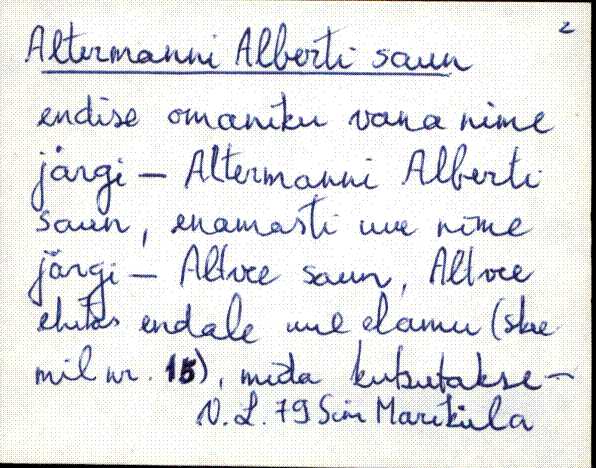 2
Altermanni Alberti saun
endise omaniku vana nime
järgi – Altermanni Alberti
saun, enamasti uue nime
järgi – Altvee saun, Altvee
ehitas endale uue elamu (skee-
mil nr. 15), mida kutsutakse –
V. L. 79 Sim Mariküla